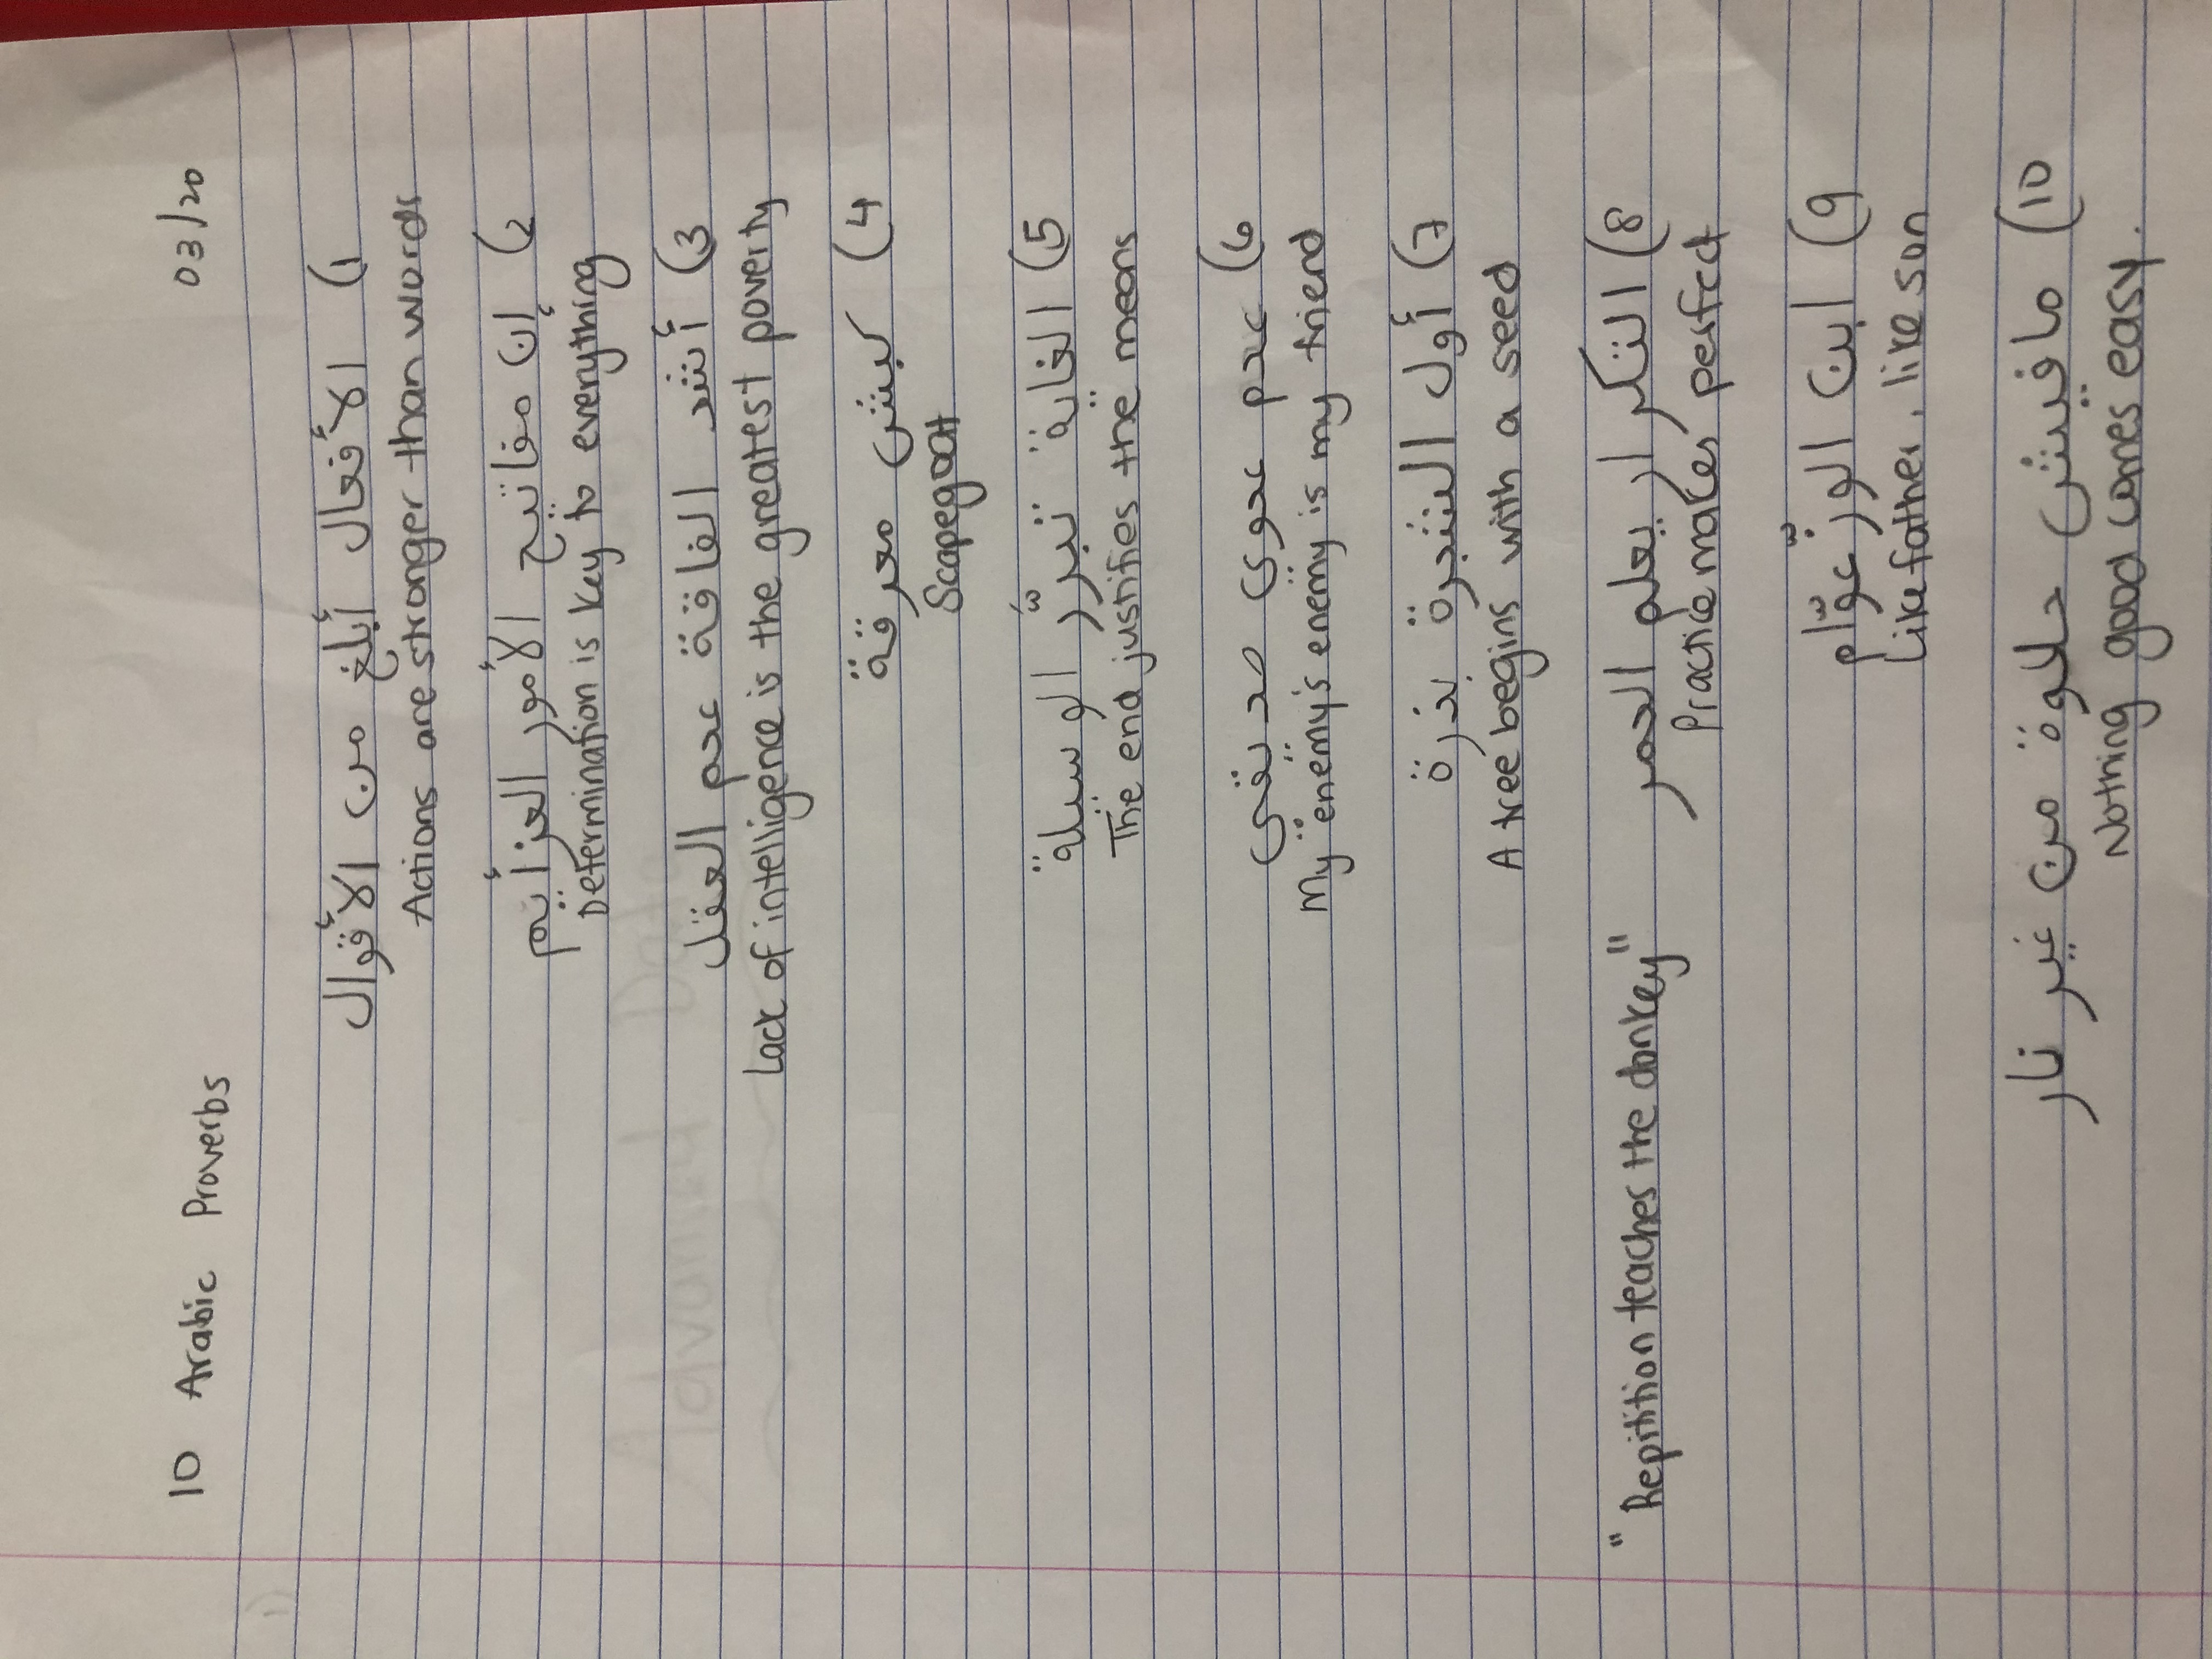 10 Arabic Proverbs 03/20
1) الأفعال أبلغ من الأقوال
Actions are stronger than words
2) إن مفاتيح الأمور العزأيم
Determination is key to everything
3) أشد الفاقة عدم العقل
Lack of intelligence is the greatest poverty
4) كبش معرقة
Scapegoat
5) الغاية تبررَّ الوسيلة
The end justifies the means
6) عدم عدوي صديقي
My enemy's enemy is my friend
7) أول الشجرة بذرة
A tree begins with a seed
8) التكرار يعلم الحمر "Repitition teaches the donkey"
Practice makes perfect
9) ابن الوزّ عوّام
Like father, like son
10) مافيش حلاوة من غير نار
Nothing good comes easy.